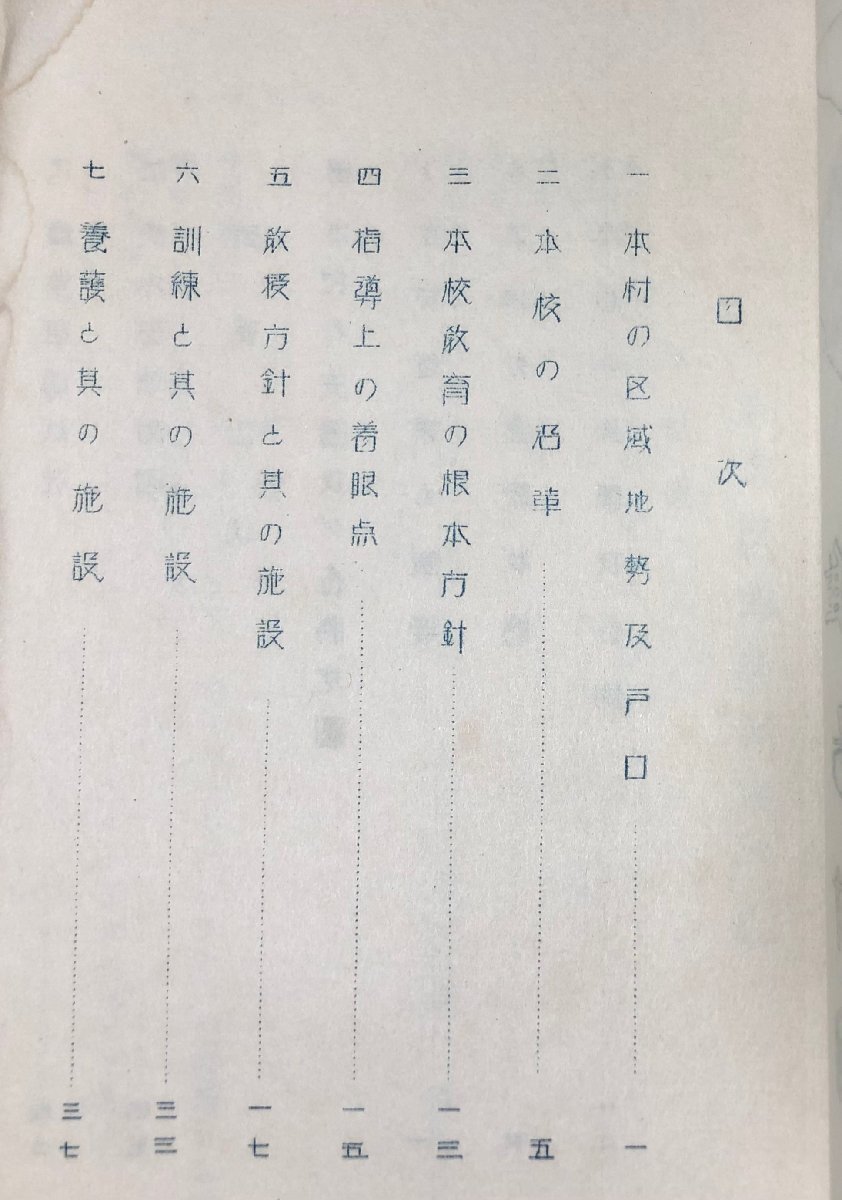 目次
一 本村の区域地勢及戸口 一
二 本校の沿革 五
三 本校教育の根本方針 一三
四 指導上の着眼点 一五
五 教授方針と其の施設 一七
六 訓練と其の施設 三三
七 養護と其の施設 三七